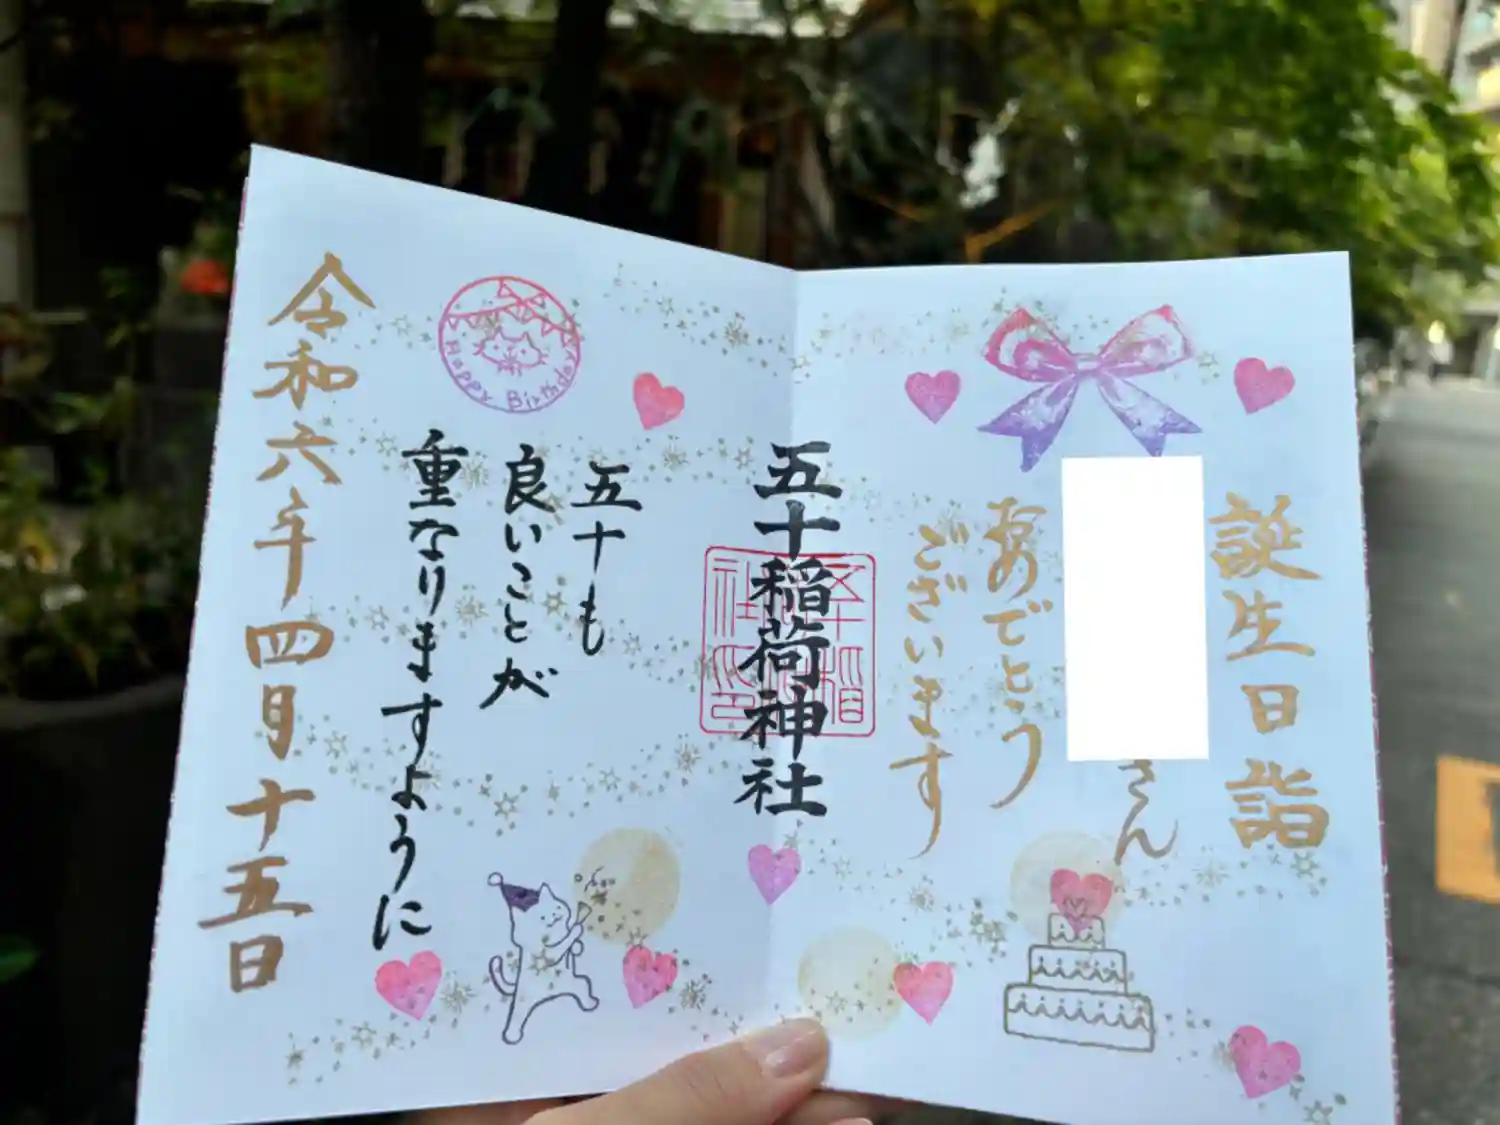 誕生日詣
さん
おめでとう
ございます
五十稲荷神社
五十も
良いことが
重なりますように
Happy Birthday
令和六年四月十五日